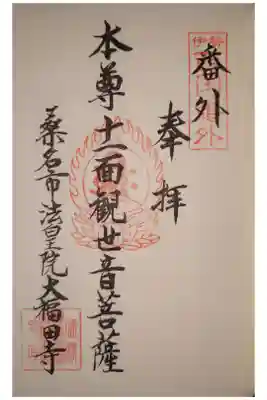 番外
奉拝
本尊十一面観世音菩薩
桑名市法皇院大福田寺